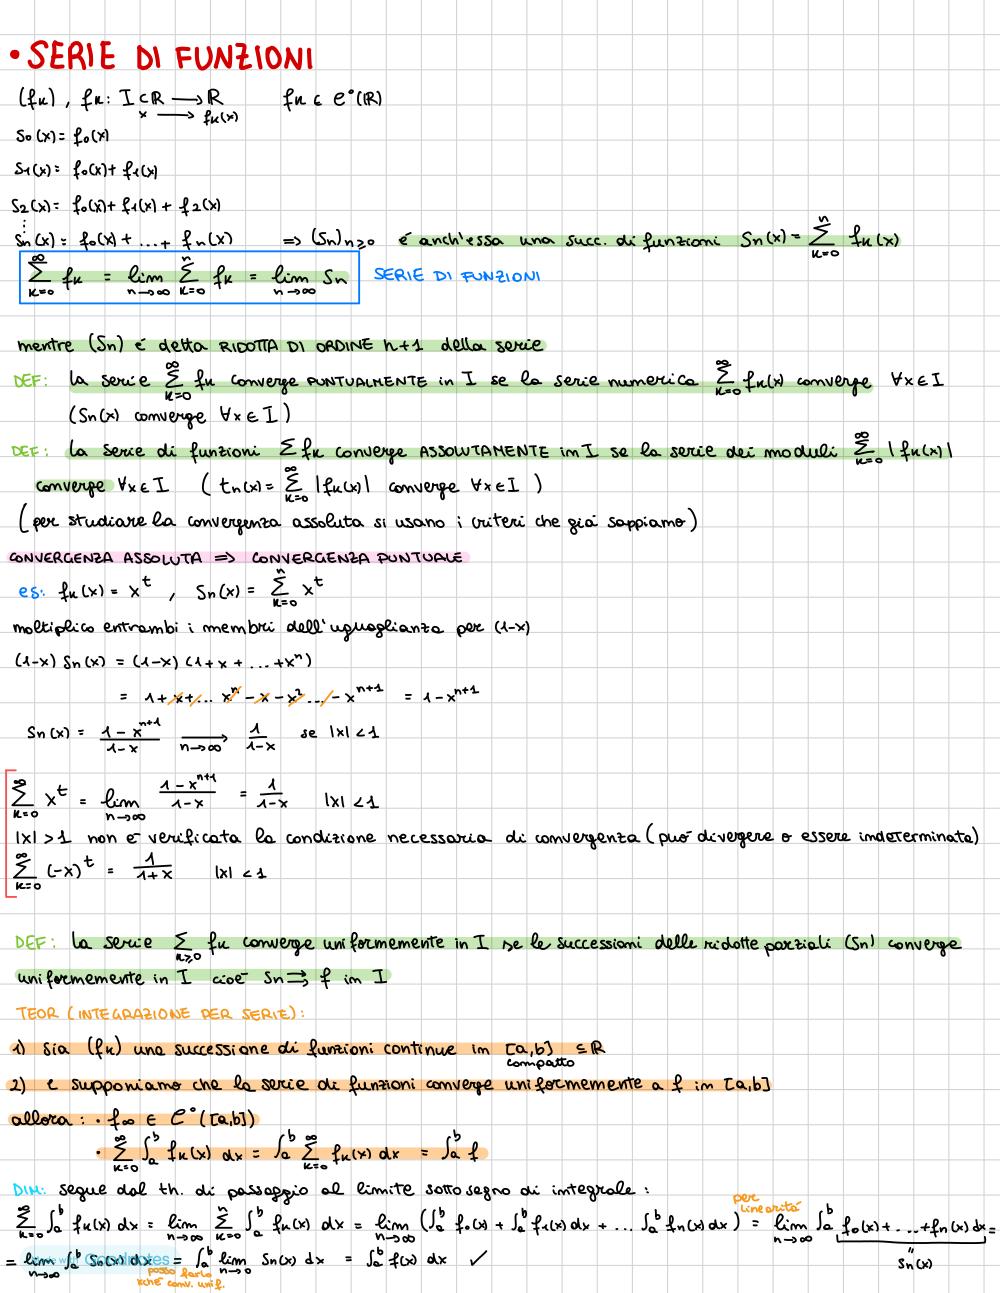 • SERIE DI FUNZIONI
(fk) , fk: I ⊂ ℝ ⟶ ℝ fk ∈ C°(ℝ)
x ⟶ fk(x)
S0(x) = f0(x)
S1(x) = f0(x) + f1(x)
S2(x) = f0(x) + f1(x) + f2(x)
⋮
Sn(x) = f0(x) + ... + fn(x) ⟹ (Sn)n≥0 é anch'essa una succ. di funzioni Sn(x) = ∑_{k=0}^{n} fk(x)
∑_{k=0}^{∞} fk = lim_{n→∞} ∑_{k=0}^{n} fk = lim_{n→∞} Sn SERIE DI FUNZIONI
mentre (Sn) é detta RIDOTTA DI ORDINE n+1 della serie
DEF: la serie ∑_{k=0}^{∞} fk converge PUNTUALMENTE in I se la serie numerica ∑_{k=0}^{∞} fk(x) converge ∀x∈I
(Sn(x) converge ∀x∈I)
DEF: la serie di funzioni ∑fk converge ASSOLUTAMENTE in I se la serie dei moduli ∑_{k=0}^{∞} |fk(x)|
converge ∀x∈I ( tn(x) = ∑_{k=0}^{∞} |fk(x)| converge ∀x∈I )
(per studiare la convergenza assoluta si usano i criteri che giá sappiamo)
CONVERGENZA ASSOLUTA ⟹ CONVERGENZA PUNTUALE
es: fk(x) = x^t , Sn(x) = ∑_{k=0}^{n} x^t
moltiplico entrambi i membri dell'uguaglianza per (1-x)
(1-x) Sn(x) = (1-x) (1+x+ ... +x^n)
= 1+x+... x^n - x - x^2 ... - x^{n+1} = 1-x^{n+1}
Sn(x) = (1-x^{n+1})/(1-x) ⟶_{n→∞} 1/(1-x) se |x|<1
∑_{k=0}^{∞} x^t = lim_{n→∞} (1-x^{n+1})/(1-x) = 1/(1-x) |x|<1
|x|>1 non é verificata la condizione necessaria di convergenza (puó divergere o essere indeterminata)
∑_{k=0}^{∞} (-x)^t = 1/(1+x) |x|<1
DEF: la serie ∑_{k≥0} fk converge uniformemente in I se le successioni delle ridotte parziali (Sn) converge
uniformemente in I cioé Sn ⇉ f in I
TEOR (INTEGRAZIONE PER SERIE):
1) sia (fk) una successione di funzioni continue in [a,b] ⊆ ℝ
compatto
2) e supponiamo che la serie di funzioni converge uniformemente a f in [a,b]
allora : • f∞ ∈ C°([a,b])
• ∑_{k=0}^{∞} ∫_a^b fk(x) dx = ∫_a^b ∑_{k=0}^{∞} fk(x) dx = ∫_a^b f
DIM: segue dal th. di passaggio al limite sotto segno di integrale :
per linearitá
∑_{k=0}^{∞} ∫_a^b fk(x) dx = lim_{n→∞} ∑_{k=0}^{n} ∫_a^b fk(x) dx = lim_{n→∞} (∫_a^b f0(x) + ∫_a^b f1(x) dx + ... ∫_a^b fn(x) dx) = lim_{n→∞} ∫_a^b f0(x) + ... + fn(x) dx =
" Sn(x)
= lim_{n→∞} ∫_a^b Sn(x) dx = ∫_a^b lim_{n→0} Sn(x) dx = ∫_a^b f(x) dx ✓
posso farlo
xché conv. unif.
Goodnotes